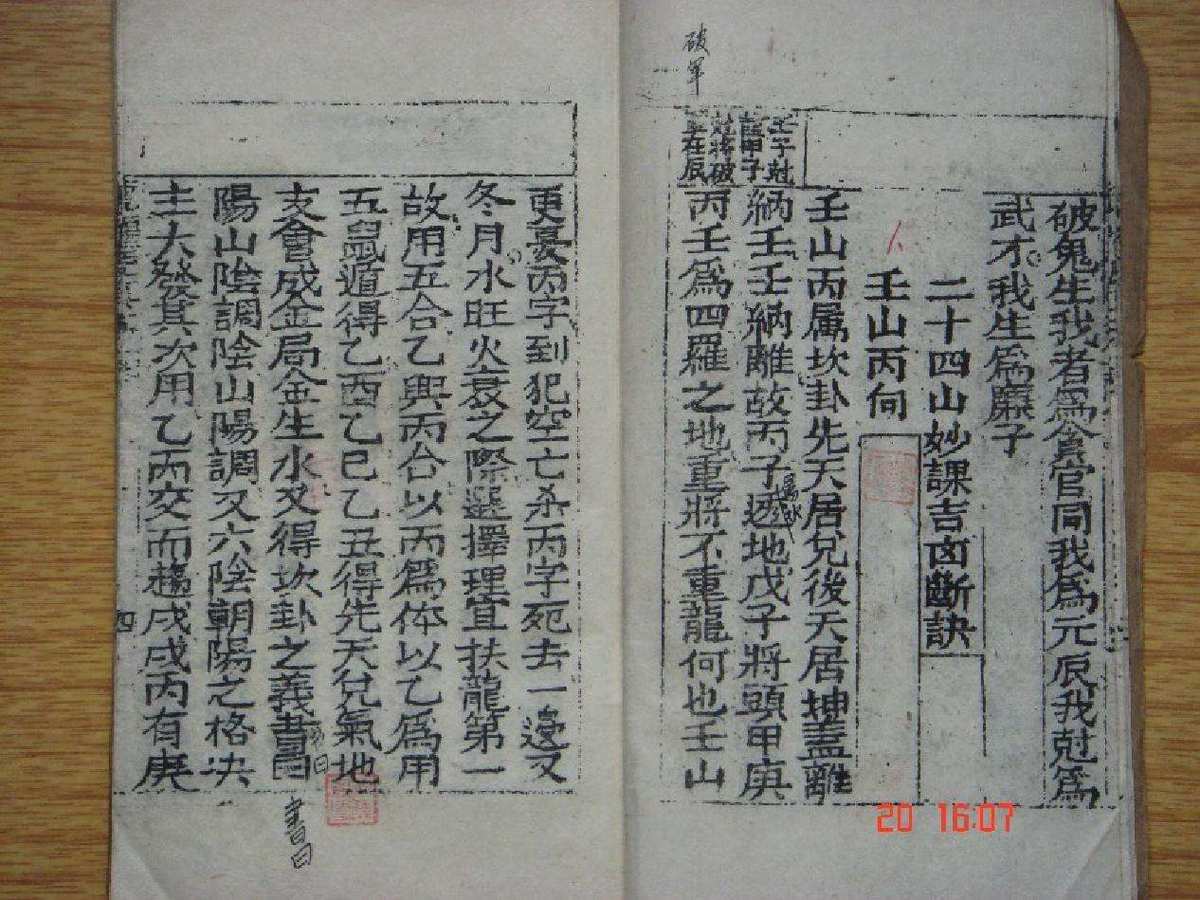 破軍
破鬼生我者爲貪官同我爲元辰我尅爲
武才我生爲廉子
二十四山妙課吉凶斷訣
壬山丙向
壬子尅
甲子
將破
軍在辰
壬山丙属坎卦先天居兌後天居坤盖離
納壬壬納離故丙子透地戊子將頭甲庚
丙壬爲四羅之地重將不重龍何也壬山
更忌丙字到犯空亡杀丙字死去一邊又
冬月水旺火衰之際選擇理宜扶龍第一
故用五合乙與丙合以丙爲体以乙爲用
五鼠遁得乙酉乙巳乙丑得先天兌氣地
支會成金局金生水又得坎卦之義書曰
書曰
陽山陰調陰山陽調又六陰朝陽之格决
主大發其次用乙丙交而趨戌戌丙有庚
四
20 16:07